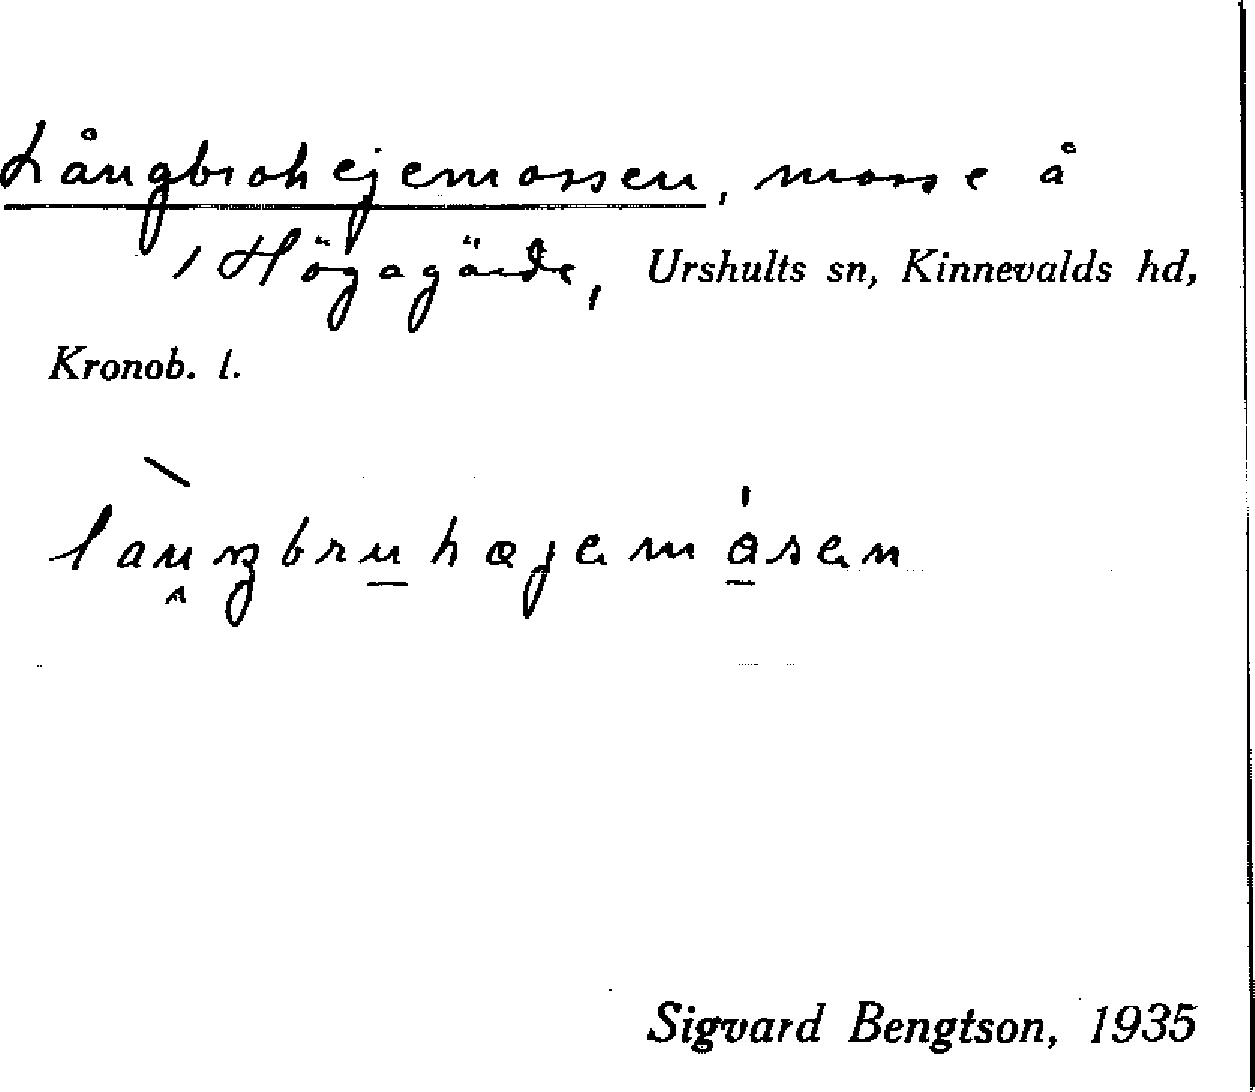 Långbrohejemossen, mosse å
/ Högagärde, Urshults sn, Kinnevalds hd,
Kronob. l.
Sigvard Bengtson, 1935